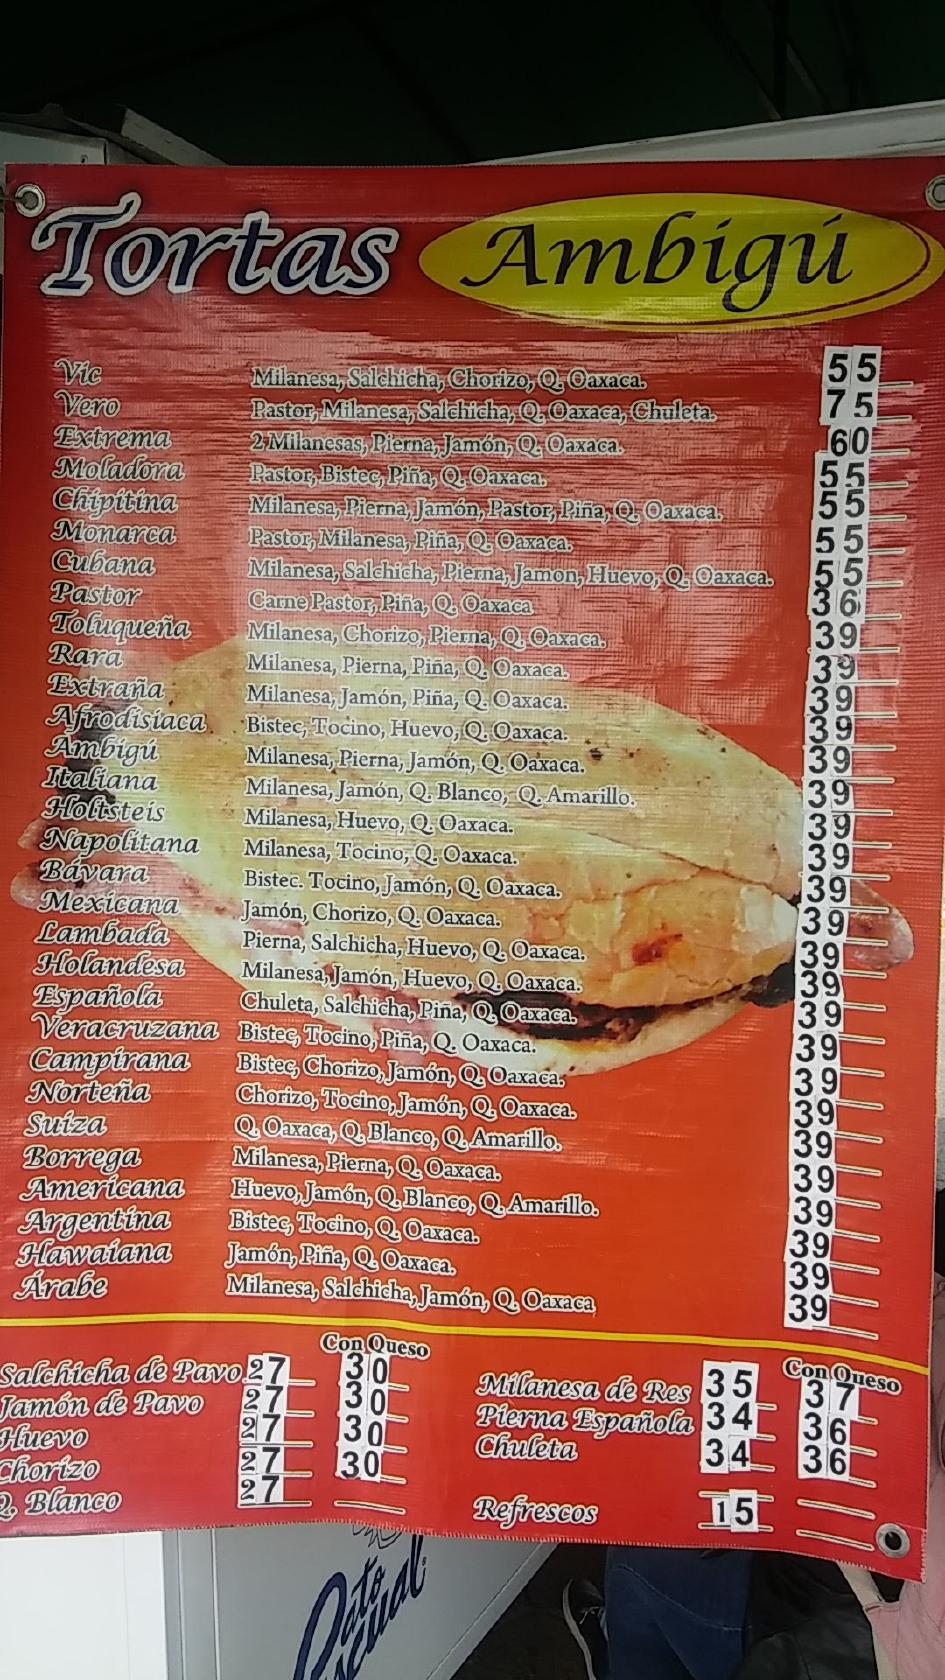 Tortas Ambigú
Vic Milanesa, Salchicha, Chorizo, Q. Oaxaca. 55
Vero Pastor, Milanesa, Salchicha, Q. Oaxaca, Chuleta. 75
Extrema 2 Milanesas, Pierna, Jamón, Q. Oaxaca. 60
Moladora Pastor, Bistec, Piña, Q. Oaxaca. 55
Chipitina Milanesa, Pierna, Jamón, Pastor, Piña, Q. Oaxaca. 55
Monarca Pastor, Milanesa, Piña, Q. Oaxaca. 55
Cubana Milanesa, Salchicha, Pierna, Jamon, Huevo, Q. Oaxaca. 55
Pastor Carne Pastor, Piña, Q. Oaxaca 36
Toluqueña Milanesa, Chorizo, Pierna, Q. Oaxaca. 39
Rara Milanesa, Pierna, Piña, Q. Oaxaca. 39
Extraña Milanesa, Jamón, Piña, Q. Oaxaca. 39
Afrodisiaca Bistec, Tocino, Huevo, Q. Oaxaca. 39
Ambigú Milanesa, Pierna, Jamón, Q. Oaxaca. 39
Italiana Milanesa, Jamón, Q. Blanco, Q. Amarillo. 39
Holtsteis Milanesa, Huevo, Q. Oaxaca. 39
Napolitana Milanesa, Tocino, Q. Oaxaca. 39
Bávara Bistec. Tocino, Jamón, Q. Oaxaca. 39
Mexicana Jamón, Chorizo, Q. Oaxaca. 39
Lambada Pierna, Salchicha, Huevo, Q. Oaxaca. 39
Holandesa Milanesa, Jamón, Huevo, Q. Oaxaca. 39
Española Chuleta, Salchicha, Piña, Q. Oaxaca. 39
Veracruzana Bistec, Tocino, Piña, Q. Oaxaca. 39
Campirana Bistec, Chorizo, Jamón, Q. Oaxaca. 39
Norteña Chorizo, Tocino, Jamón, Q. Oaxaca. 39
Suiza Q. Oaxaca, Q. Blanco, Q. Amarillo. 39
Borrega Milanesa, Pierna, Q. Oaxaca. 39
Americana Huevo, Jamón, Q. Blanco, Q. Amarillo. 39
Argentina Bistec, Tocino, Q. Oaxaca. 39
Hawaiana Jamón, Piña, Q. Oaxaca. 39
Árabe Milanesa, Salchicha, Jamón, Q. Oaxaca 39
Con Queso
Salchicha de Pavo 27 30
Jamón de Pavo 27 30
Huevo 27 30
Chorizo 27 30
Q. Blanco 27
Con Queso
Milanesa de Res 35 37
Pierna Española 34 36
Chuleta 34 36
Refrescos 15
Pato